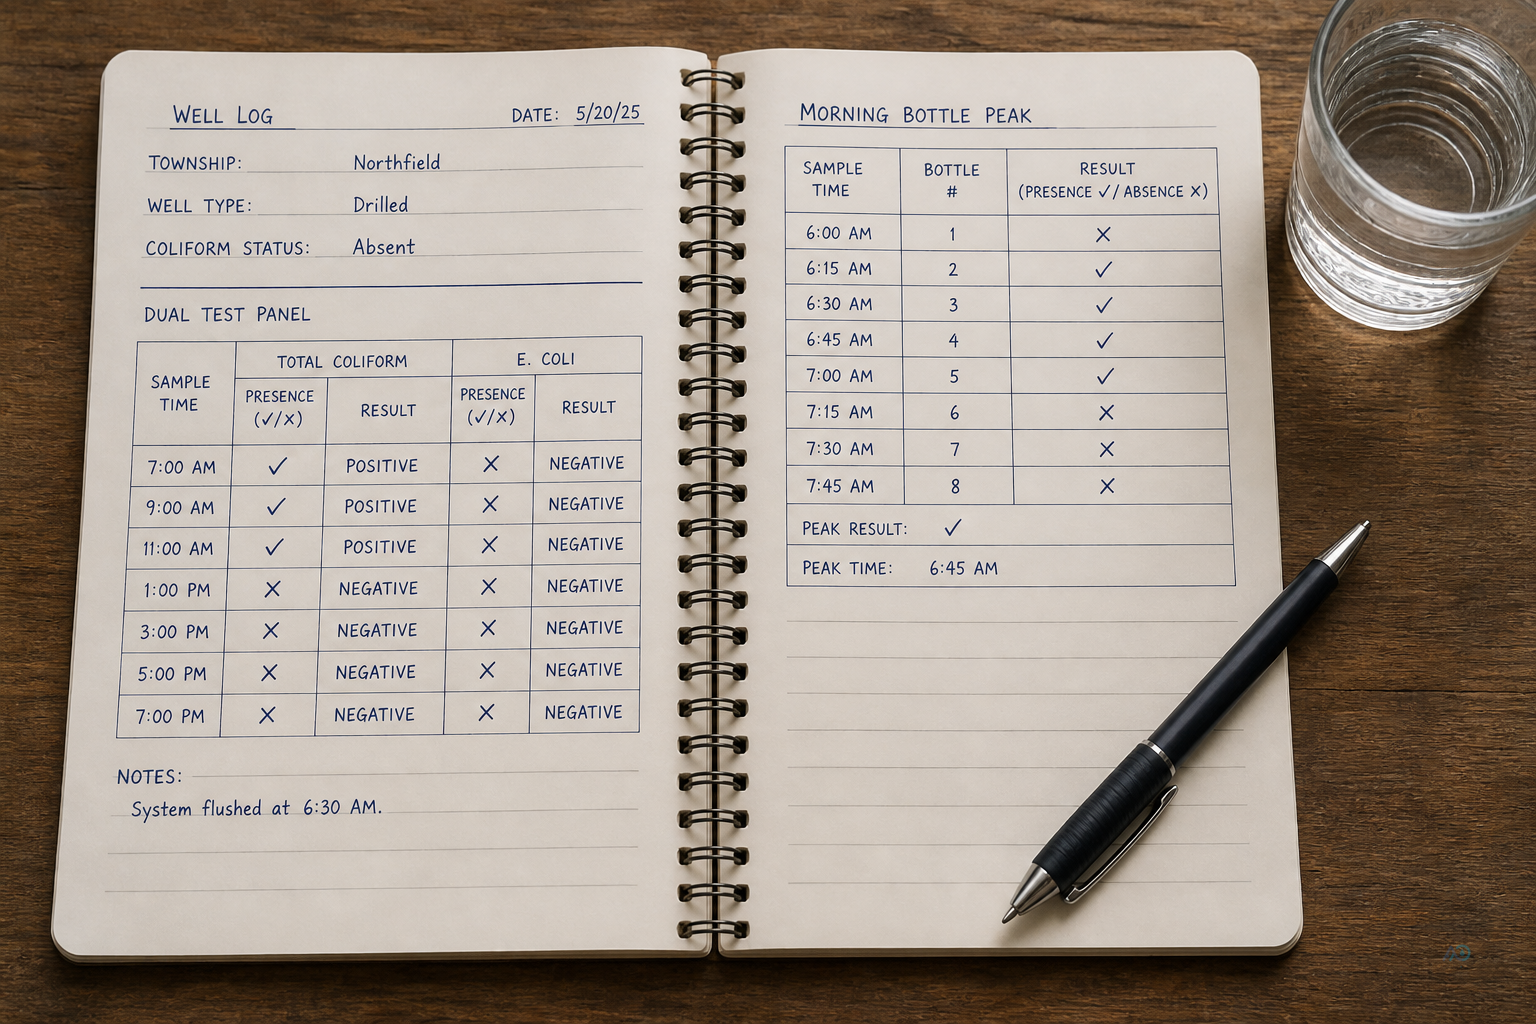 WELL LOG DATE: 5/20/25
TOWNSHIP: Northfield
WELL TYPE: Drilled
COLIFORM STATUS: Absent
DUAL TEST PANEL
SAMPLE TIME TOTAL COLIFORM E. COLI
PRESENCE (✓/X) RESULT PRESENCE (✓/X) RESULT
7:00 AM ✓ POSITIVE X NEGATIVE
9:00 AM ✓ POSITIVE X NEGATIVE
11:00 AM ✓ POSITIVE X NEGATIVE
1:00 PM X NEGATIVE X NEGATIVE
3:00 PM X NEGATIVE X NEGATIVE
5:00 PM X NEGATIVE X NEGATIVE
7:00 PM X NEGATIVE X NEGATIVE
NOTES:
System flushed at 6:30 AM.
MORNING BOTTLE PEAK
SAMPLE TIME BOTTLE # RESULT (PRESENCE ✓/ ABSENCE X)
6:00 AM 1 X
6:15 AM 2 ✓
6:30 AM 3 ✓
6:45 AM 4 ✓
7:00 AM 5 ✓
7:15 AM 6 X
7:30 AM 7 X
7:45 AM 8 X
PEAK RESULT: ✓
PEAK TIME: 6:45 AM